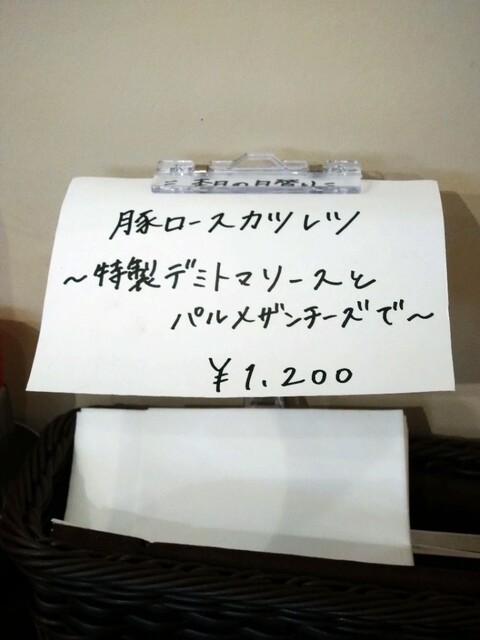 豚ロースカツレツ
～特製デミトマソースと
パルメザンチーズで～
¥1,200